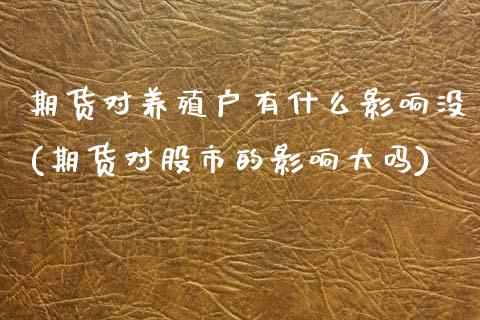 期货对养殖户有什么影响没
(期货对股市的影响大吗)